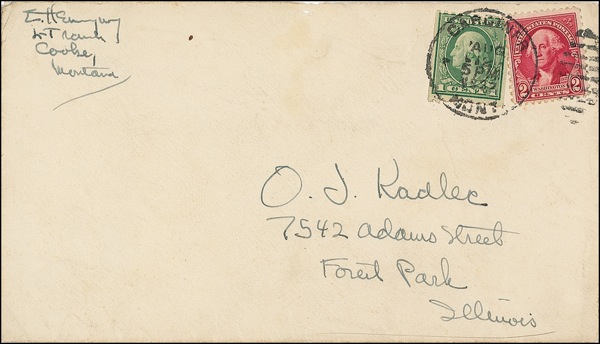 E. Hemingway
L-T Ranch
Cooke,
Montana
1 CENT 1
GARDINER
5 PM
MONT.
UNITED STATES POSTAGE
2 WASHINGTON 2
CENTS
O. J. Kadlec
7542 Adams Street
Forest Park
Illinois